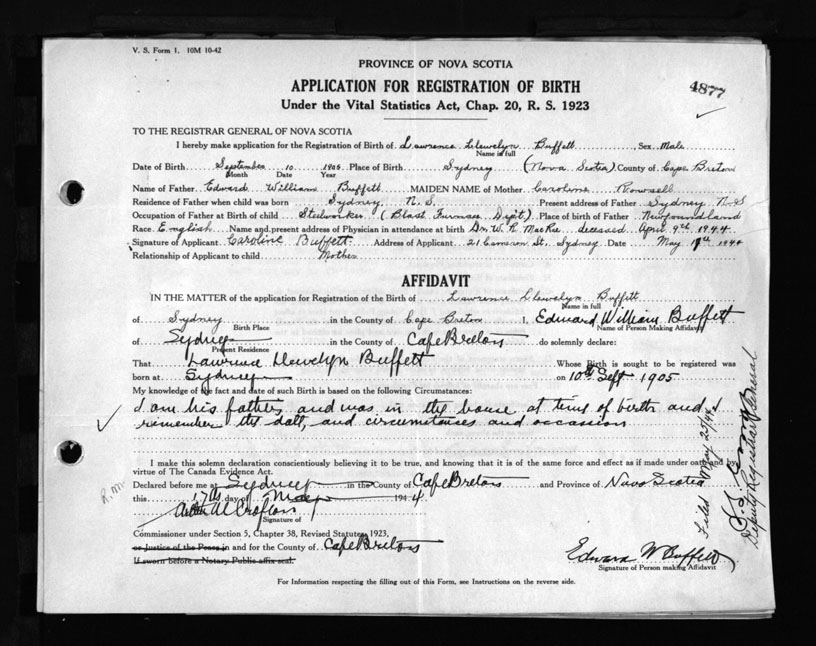 V. S. Form 1. 10M 10-42
PROVINCE OF NOVA SCOTIA
APPLICATION FOR REGISTRATION OF BIRTH
4877
Under the Vital Statistics Act, Chap. 20, R. S. 1923
TO THE REGISTRAR GENERAL OF NOVA SCOTIA
I hereby make application for the Registration of Birth of Lawrence Llewelyn Buffett, Sex Male
Name in full
Date of Birth September 10 1905 Place of Birth Sydney (Nova Scotia) County of Cape Breton
Month Date Year
Name of Father Edward William Buffett MAIDEN NAME of Mother Caroline Rowsell
Residence of Father when child was born Sydney, N. S. Present address of Father Sydney N.S
Occupation of Father at Birth of child Steelworker (Blast Furnace Dept.) Place of birth of Father Newfoundland
Race English Name and present address of Physician in attendance at birth Dr. W. R. MacRae deceased April 9th 1944
Signature of Applicant Caroline Buffett Address of Applicant 21 Cameron St, Sydney Date May 1944
Relationship of Applicant to child Mother
AFFIDAVIT
IN THE MATTER of the application for Registration of the Birth of Lawrence Llewelyn Buffett
Name in full
of Sydney in the County of Cape Breton I, Edward William Buffett
Birth Place Name of Person Making Affidavit
of Sydney in the County of Cape Breton do solemnly declare:
Present Residence
That Lawrence Llewelyn Buffett Whose Birth is sought to be registered was
born at Sydney on 10th Sept 1905
My knowledge of the fact and date of such Birth is based on the following Circumstances:
I am his father, and was in the house at time of birth and I
remember the date, and circumstances and occasion
I make this solemn declaration conscientiously believing it to be true, and knowing that it is of the same force and effect as if made under oath and by
virtue of The Canada Evidence Act.
Declared before me at Sydney in the County of Cape Breton and Province of Nova Scotia
this 17th day of May 1944
Signature of
Commissioner under Section 5, Chapter 38, Revised Statutes, 1923,
or Justice of the Peace in and for the County of Cape Breton
If sworn before a Notary Public affix seal.
Edward W Buffett
Signature of Person making Affidavit
For Information respecting the filling out of this Form, see Instructions on the reverse side.
Filed May 25/44
Deputy Registrar General
R.M.